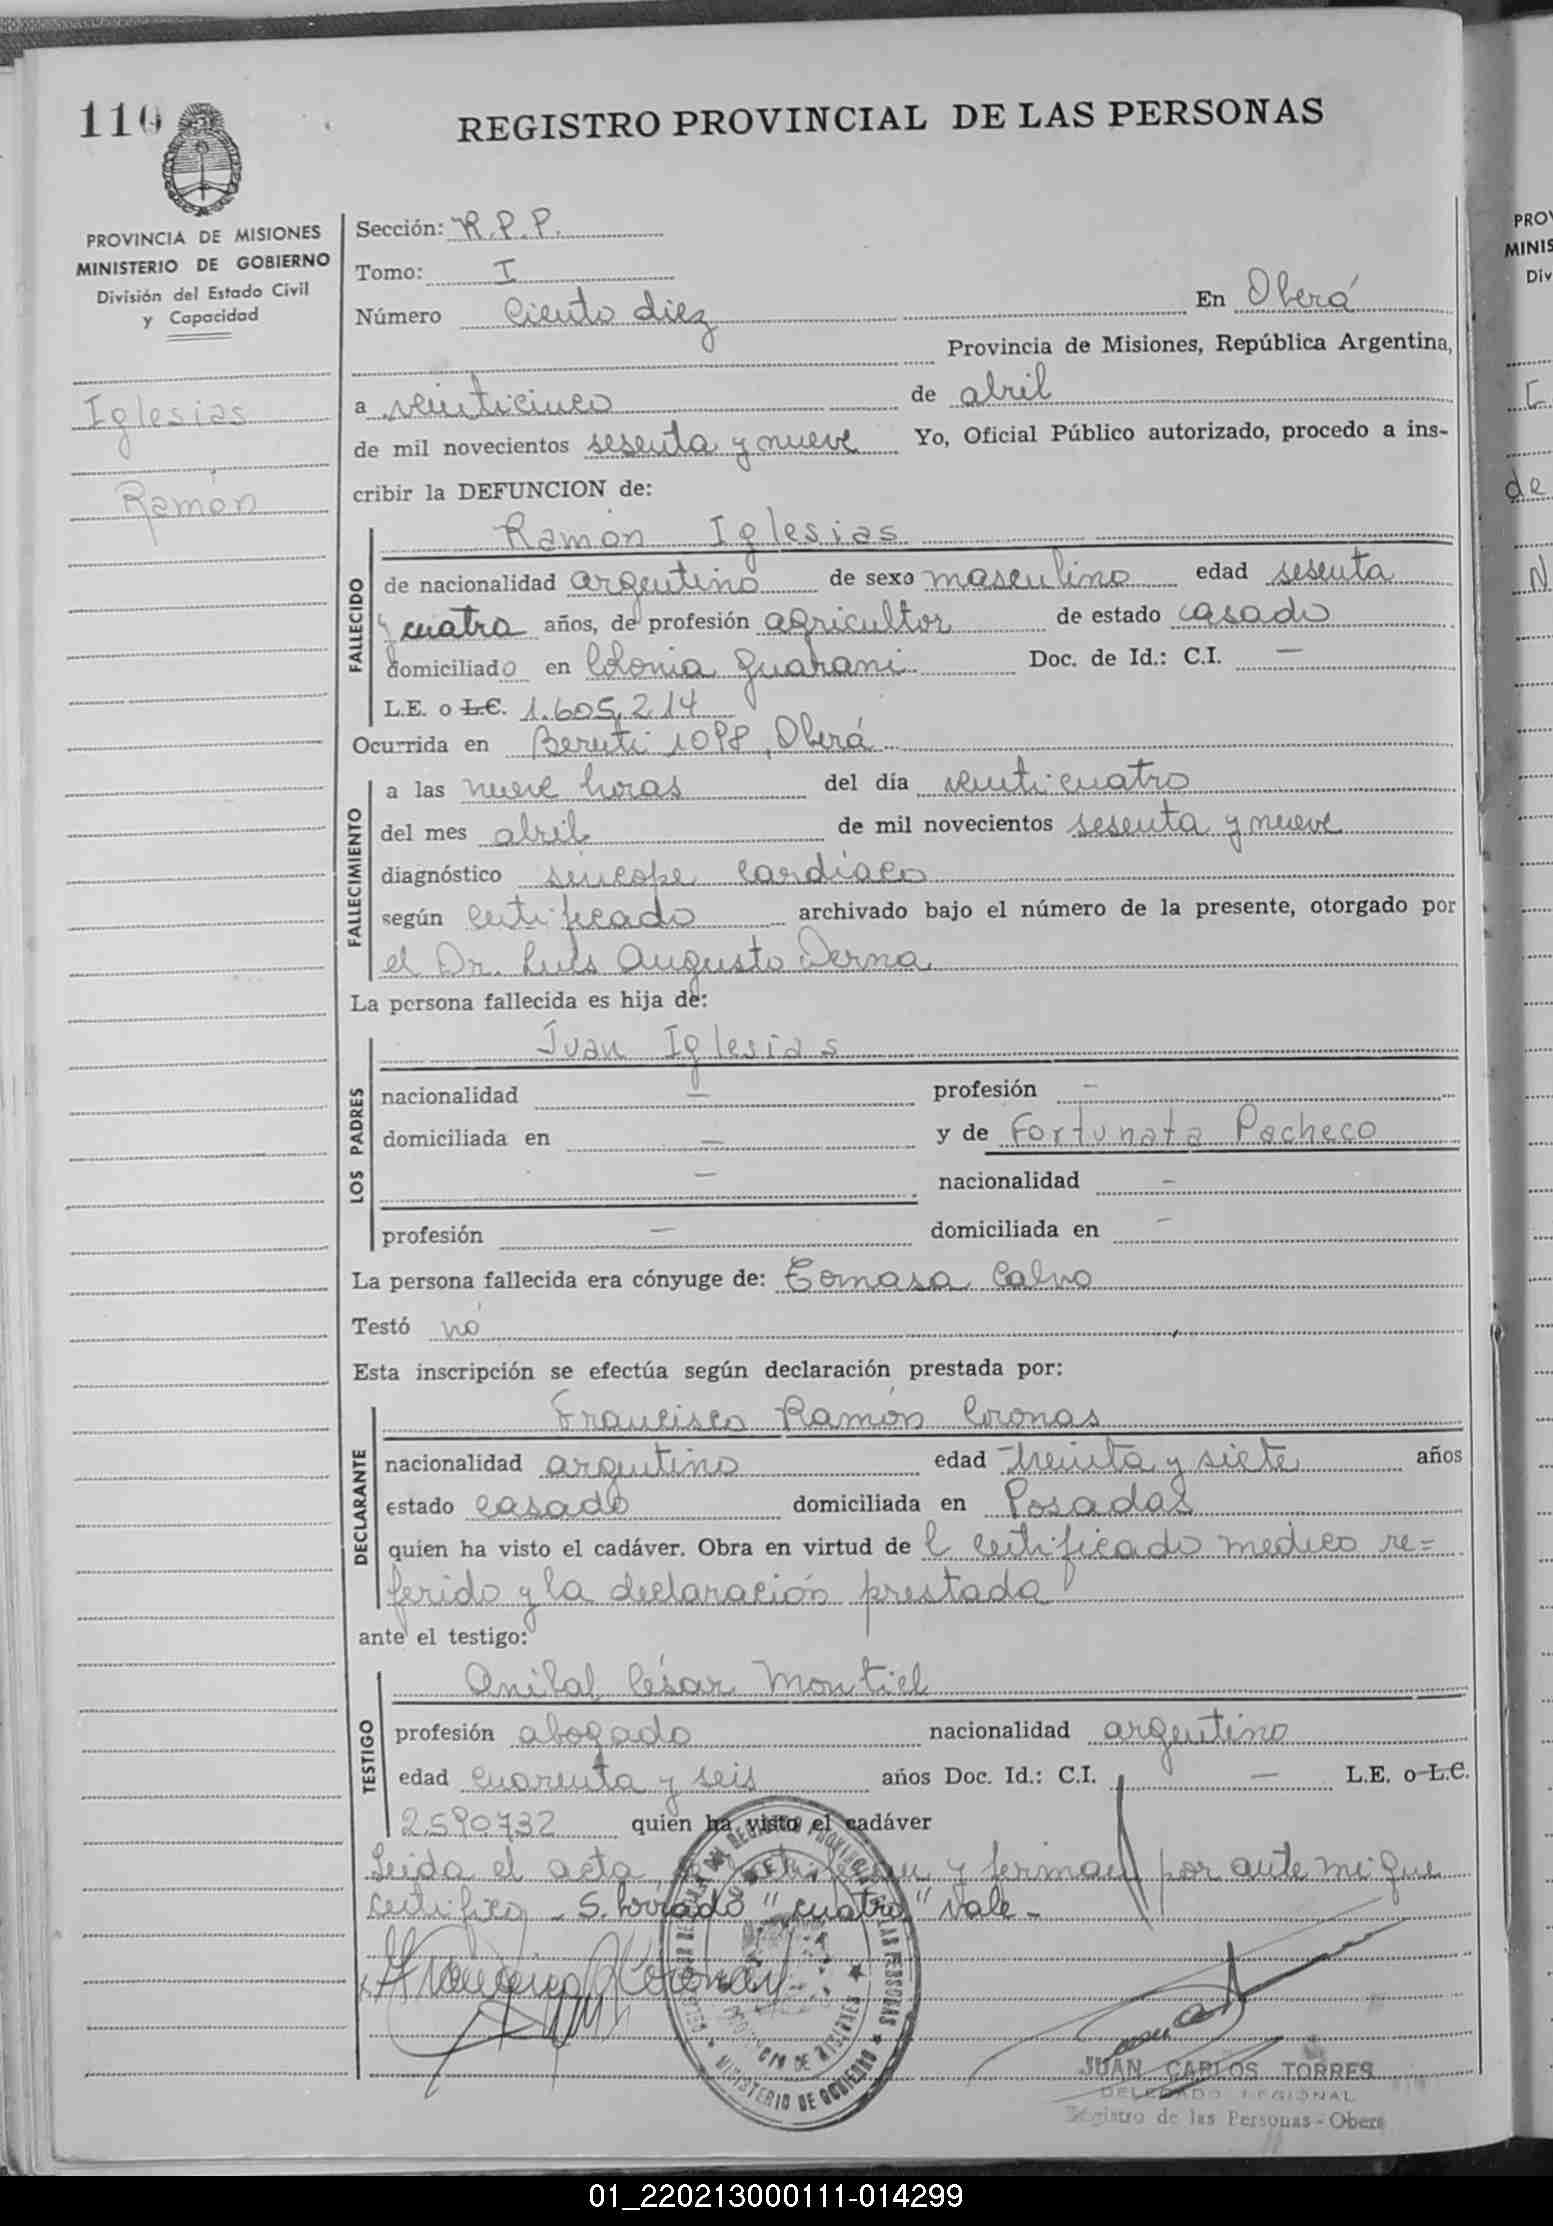 110
REGISTRO PROVINCIAL DE LAS PERSONAS
PROVINCIA DE MISIONES
MINISTERIO DE GOBIERNO
División del Estado Civil
y Capacidad
Iglesias
Ramón
Sección: R.P.P.
Tomo: I
Número Ciento diez En Oberá
Provincia de Misiones, República Argentina,
a veinticinco de abril
de mil novecientos sesenta y nueve Yo, Oficial Público autorizado, procedo a ins-
cribir la DEFUNCION de:
Ramón Iglesias
FALLECIDO
de nacionalidad argentino de sexo masculino edad sesenta
y cuatro años, de profesión agricultor de estado casado
domiciliado en Colonia Guaraní Doc. de Id.: C.I. —
L.E. o L.C. 1.605.214
Ocurrida en Beruti 1098, Oberá
FALLECIMIENTO
a las nueve horas del día veinticuatro
del mes abril de mil novecientos sesenta y nueve
diagnóstico síncope cardíaco
según certificado archivado bajo el número de la presente, otorgado por
el Dr. Luis Augusto Derna
La persona fallecida es hija de:
LOS PADRES
Juan Iglesias
nacionalidad — profesión —
domiciliada en — y de Fortunata Pacheco
— nacionalidad —
profesión — domiciliada en —
La persona fallecida era cónyuge de: Tomasa Calvo
Testó no
Esta inscripción se efectúa según declaración prestada por:
DECLARANTE
Francisco Ramón Coronas
nacionalidad argentino edad treinta y siete años
estado casado domiciliada en Posadas
quien ha visto el cadáver. Obra en virtud de l certificado médico re=
ferido y la declaración prestada
ante el testigo:
TESTIGO
Anibal César Montiel
profesión abogado nacionalidad argentino
edad cuarenta y seis años Doc. Id.: C.I. — L.E. o L.C.
2590732 quien ha visto el cadáver
Leida el acta la ratifican y firman por ante mi que
certifico - S. borrado "cuatro" vale -
MINISTERIO DE GOBIERNO
PROVINCIA DE MISIONES
JUAN CARLOS TORRES
DELEGADO REGIONAL
Registro de las Personas - Oberá
PRO
MINIS
Div
de
N
01_220213000111-014299